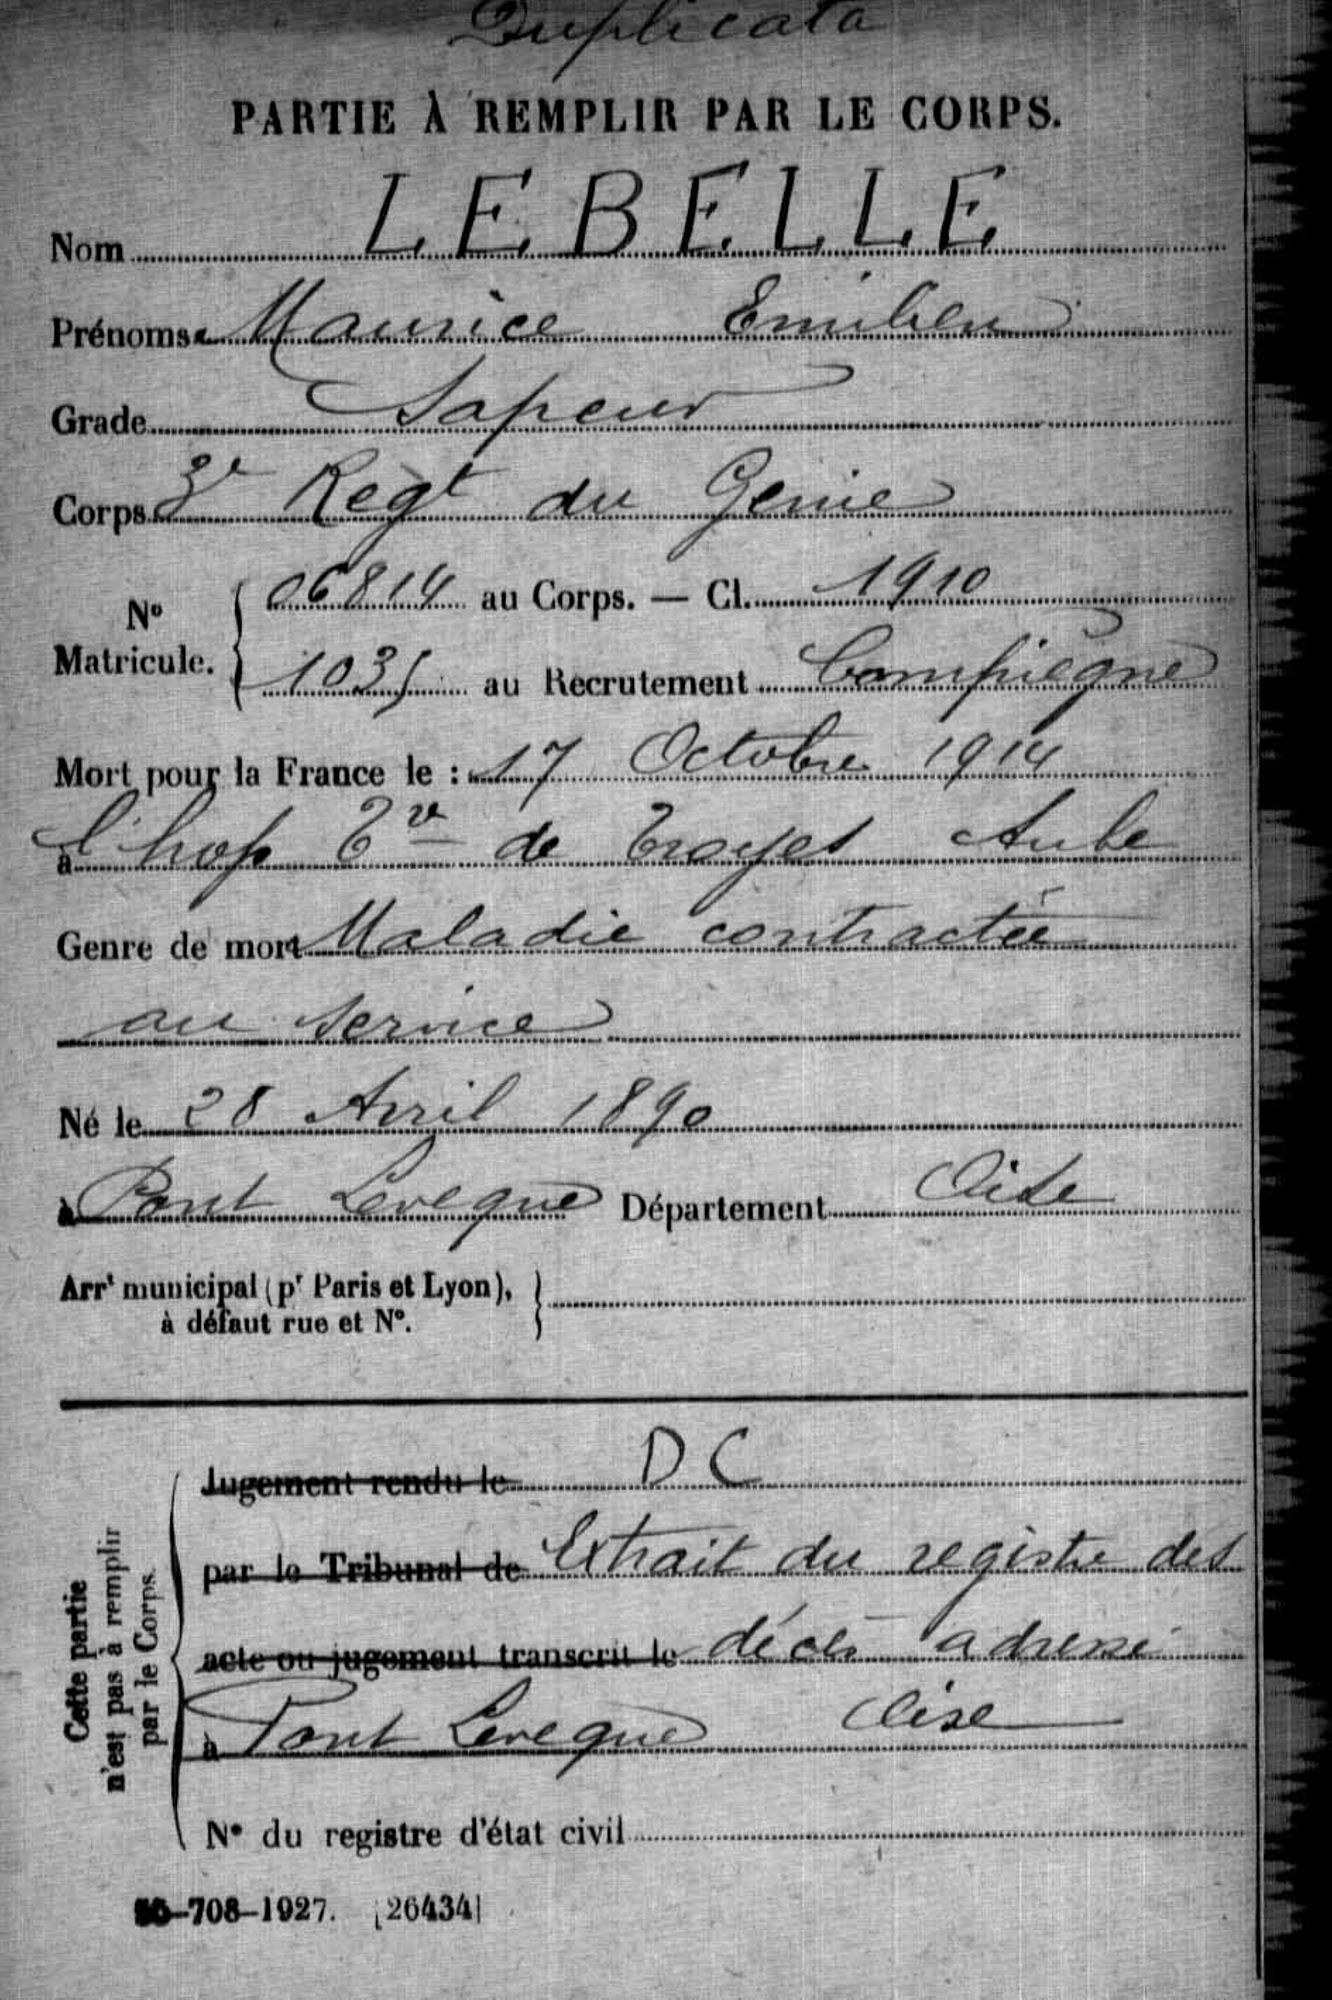 Duplicata
PARTIE À REMPLIR PAR LE CORPS.
Nom LEBELLE
Prénoms Maurice Emilien
Grade Sapeur
Corps 3e Régt du Genie
No Matricule. 06814 au Corps. — Cl. 1910
1035 au Recrutement Compiègne
Mort pour la France le : 17 Octobre 1914
à l'hop Ev de Troyes Aube
Genre de mort Maladie contractée
au service
Né le 28 Avril 1890
à Pont Leveque Département Oise
Arrt municipal (pr Paris et Lyon),
à défaut rue et No.
Jugement rendu le DC
par le Tribunal de Extrait du registre des
acte ou jugement transcrit le décès adressé
à Pont Leveque Oise
No du registre d'état civil
Cette partie
n'est pas à remplir
par le Corps.
-708-1927. [26434]